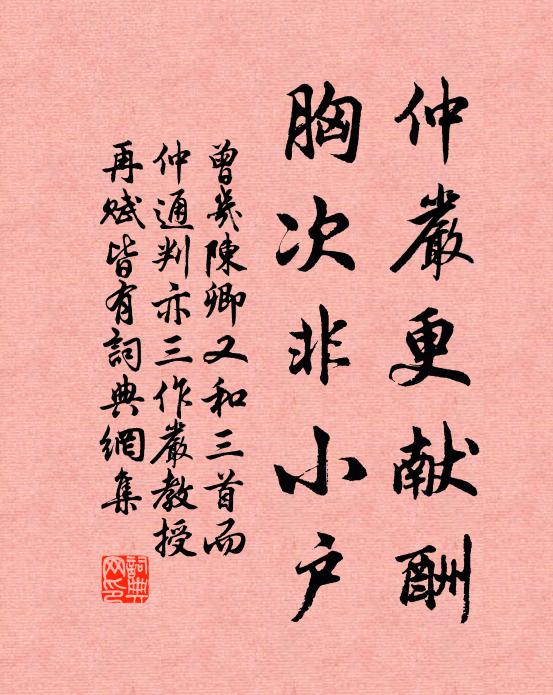 仲嚴更献酬
胸次非小户
曾幾陳卿又和三首而
仲通判亦三作嚴教授
再赋皆有詞典網集
詞典网印